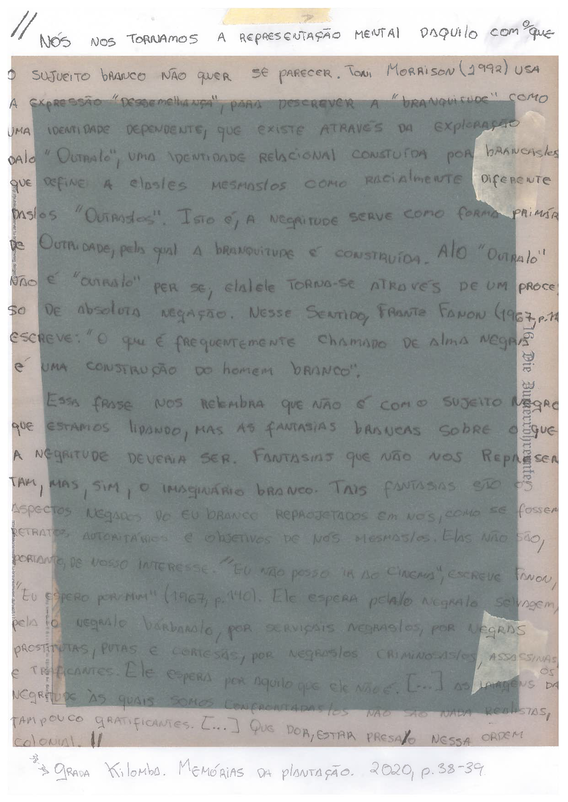 // NÓS NOS TORNAMOS A REPRESENTAÇÃO MENTAL DAQUILO COM O QUE
O SUJUEITO BRANCO NÃO QUER SE PARECER. TONI MORRISON (1992) USA
A EXPRESSÃO "DESSEMELHANÇA", PARA DESCREVER A "BRANQUITUDE" COMO
UMA IDENTIDADE DEPENDENTE, QUE EXISTE ATRAVÉS DA EXPLORAÇÃO
DA/O "OUTRA/O", UMA IDENTIDADE RELACIONAL CONSTUÍDA POR BRANCAS/ES
QUE DEFINE A ELAS/ES MESMAS/OS COMO RACIALMENTE DIFERENTE
DAS/OS "OUTRAS/OS". ISTO É, A NEGRITUDE SERVE COMO FORMA PRIMÁR
DE OUTRIDADE, PELA QUAL A BRANQUITUDE É CONSTRUÍDA. A/O "OUTRA/O"
NÃO É "OUTRA/O" PER SE, ELA/ELE TORNA-SE ATRAVÉS DE UM PROCE
SO DE ABSOLUTA NEGAÇÃO. NESSE SENTIDO, FRANTZ FANON (1967, p.
ESCREVE: "O QUE É FREQUENTEMENTE CHAMADO DE ALMA NEGRA
É UMA CONSTRUÇÃO DO HOMEM BRANCO".
ESSA FRASE NOS RELEMBRA QUE NÃO É COM O SUJEITO NEGRO
QUE ESTAMOS LIDANDO, MAS AS FANTASIAS BRANCAS SOBRE O QUE
A NEGRITUDE DEVERIA SER. FANTASIAS QUE NÃO NOS REPRESEN
TAM, MAS, SIM, O IMAGINÁRIO BRANCO. TAIS FANTASIAS SÃO OS
ASPECTOS NEGADOS DO EU BRANCO REPROJETADOS EM NÓS, COMO SE FOSSEM
RETRATOS AUTORITÁRIOS E OBJETIVOS DE NÓS MESMAS/OS. ELAS NÃO SÃO,
PORTANTO, DE NOSSO INTERESSE. "EU NÃO POSSO IR AO CINEMA", ESCREVE FANON,
"EU ESPERO POR MIM" (1967, p.140). ELE ESPERA PELA/O NEGRA/O SELVAGEM,
PELA O NEGRA/O BÁRBARA/O, POR SERVIÇAIS NEGRAS/OS, POR NEGRAS
PROSTITUTAS, PUTAS E CORTESÃS, POR NEGRAS/OS CRIMINOSAS/OS, ASSASSINAS/OS
E TRAFICANTES. ELE ESPERA POR AQUILO QUE ELE NÃO É. [...] AS IMAGENS DA
NEGRITUDE ÀS QUAIS SOMOS CONFRONTADAS/OS NÃO SÃO NADA REALISTAS,
TAMPOUCO GRATIFICANTES. [...] QUE DOR, ESTAR PRESA/O NESSA ORDEM
COLONIAL. //
GRADA KILOMBA. MEMÓRIAS DA PLANTAÇÃO. 2020, p.38-39.
16. Die